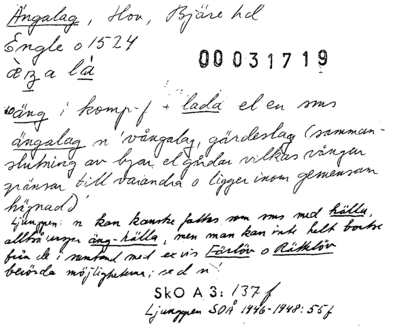 Ängalag, Hov, Bjäre hd
Engle o 1524
00031719
äng i komp-f + lada el en sms
ängalag n 'vångalag, gärdeslag (samman-
slutning av byar el gårdar vilkas vångar
gränsar till varandra o ligger inom gemensam
hägnad)'
Ljunggren: n kan kanske fattas som sms med hålla,
alltså urspr äng-hålla, men man kan inte helt bortse
från de i samband med ex vis Förlöv o Rättelöv
berörda möjligheterna; se d n
SkO A 3: 137 f
Ljunggren SOÅ 1946-1948: 55 f